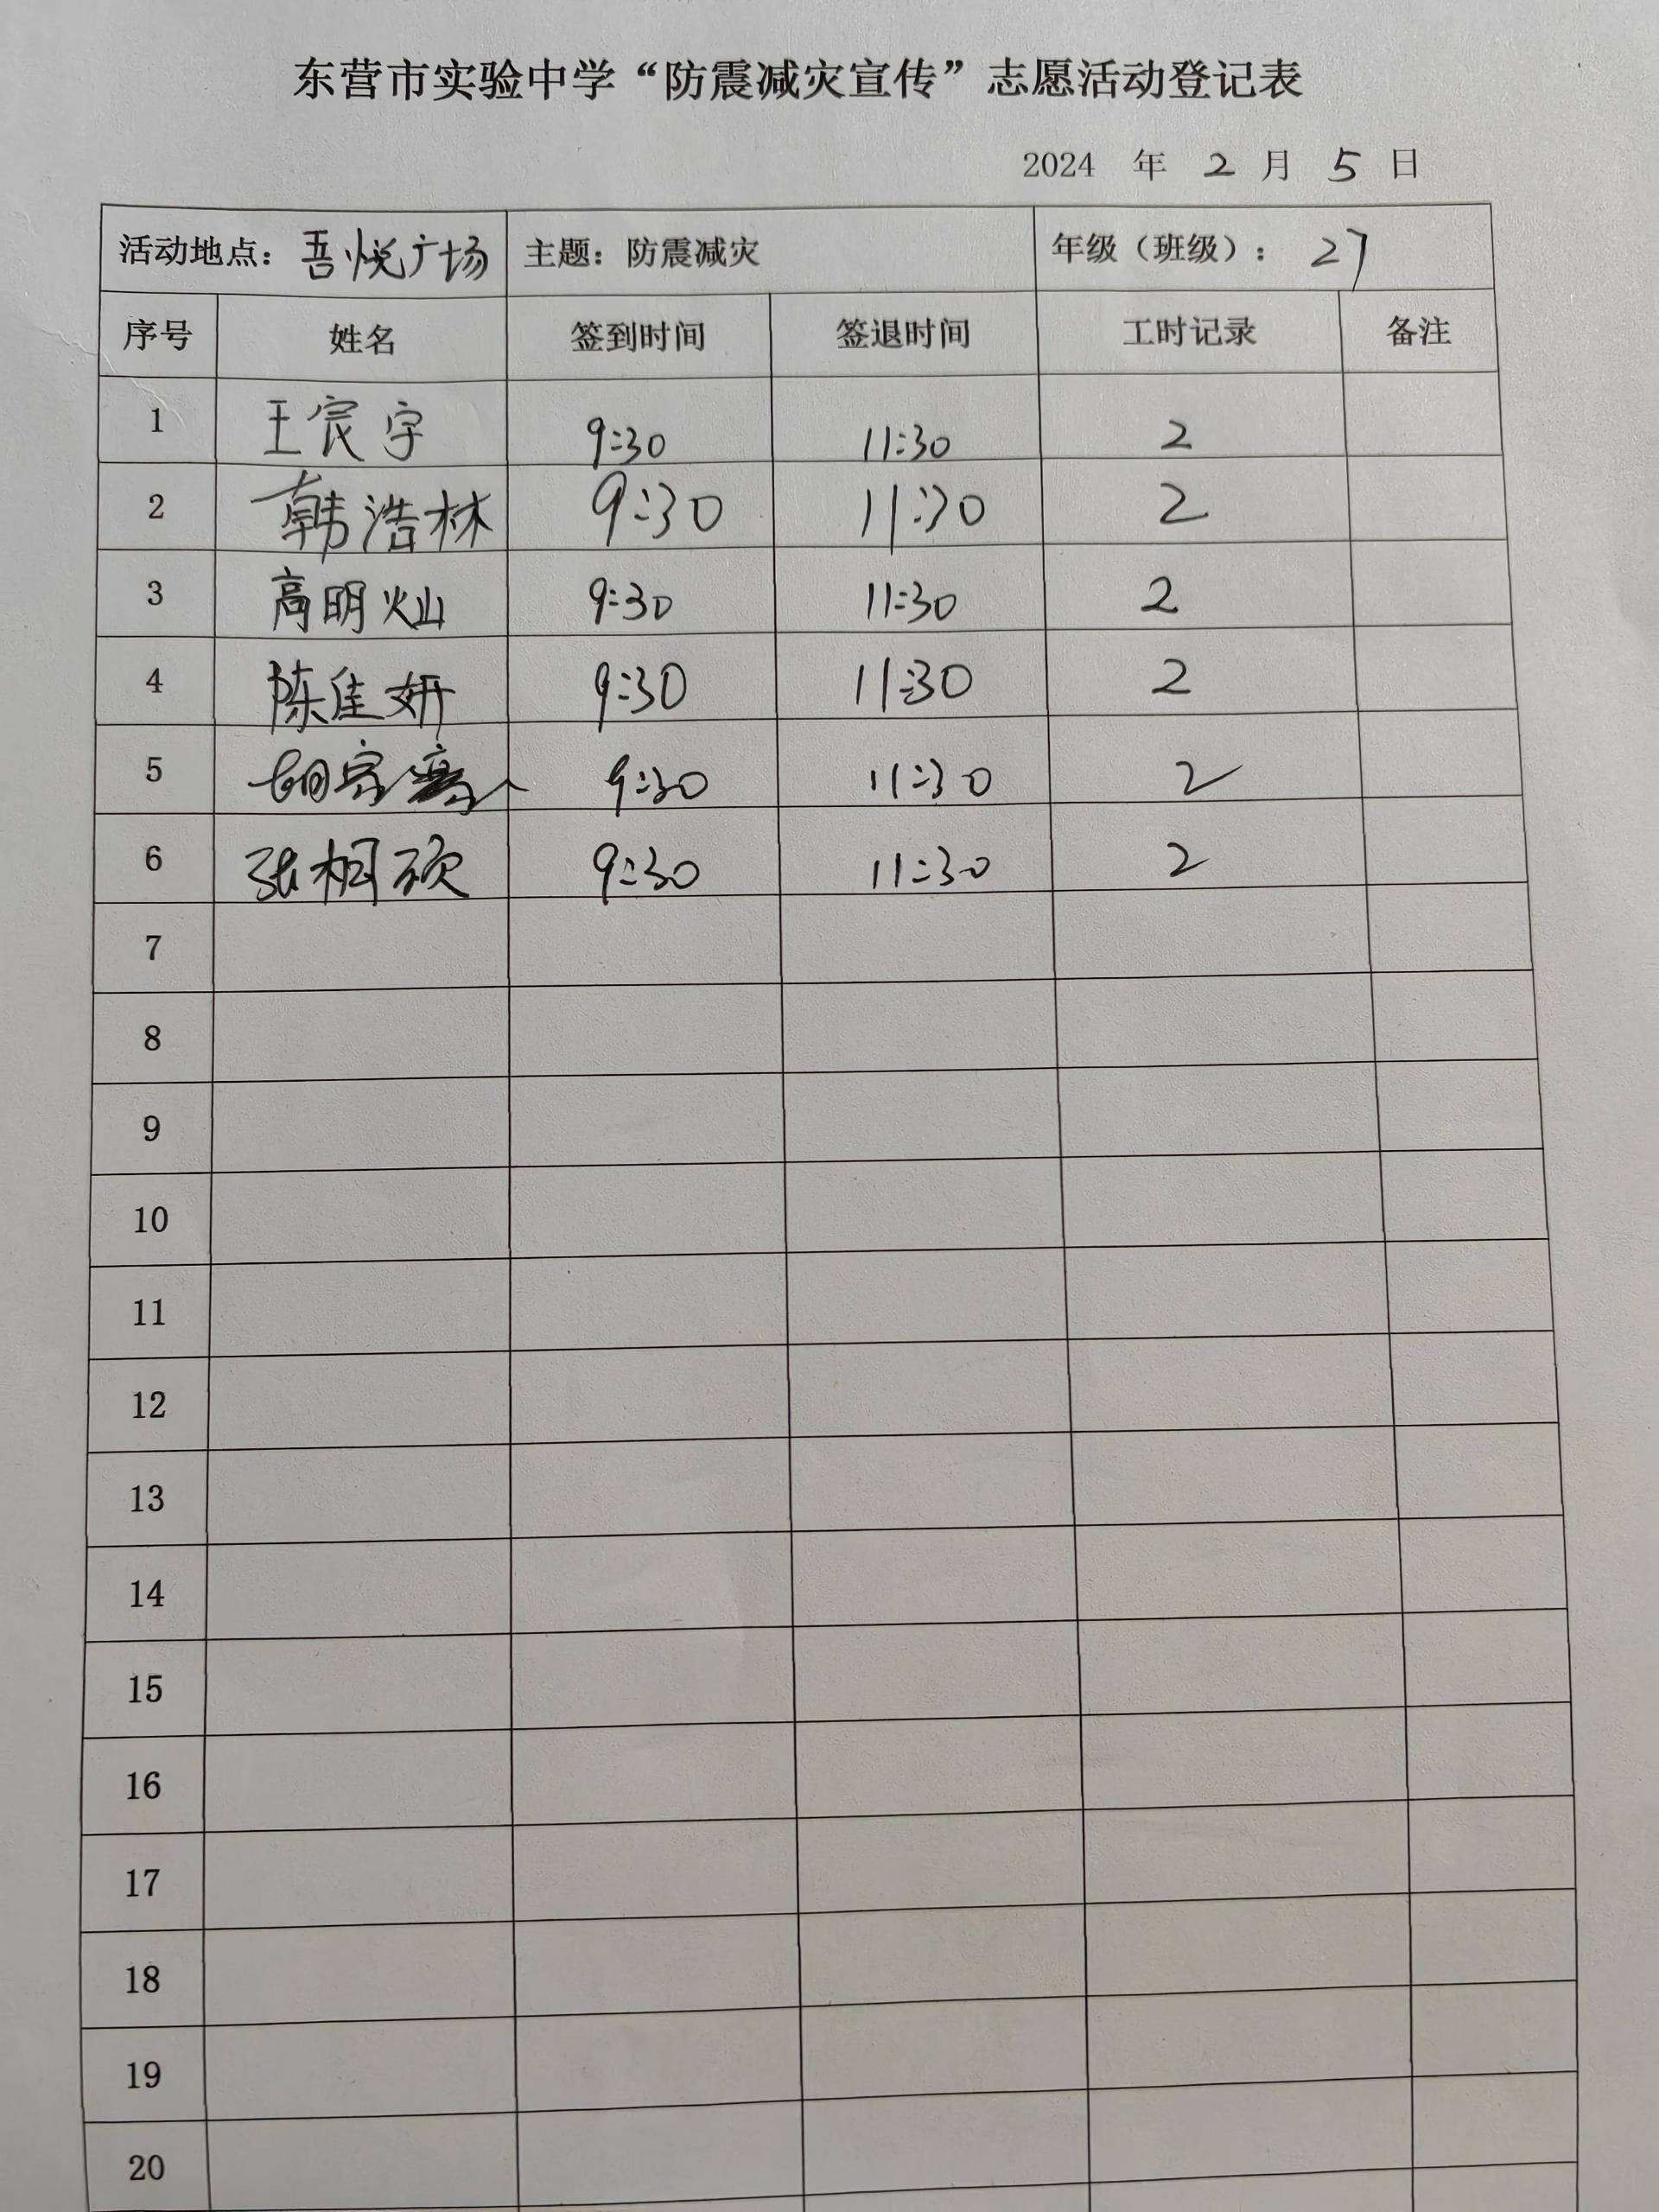 东营市实验中学“防震减灾宣传”志愿活动登记表
2024 年 2 月 5 日
活动地点：吾悦广场 主题：防震减灾 年级（班级）：27
序号 姓名 签到时间 签退时间 工时记录 备注
1 王宸宇 9:30 11:30 2
2 韩浩林 9:30 11:30 2
3 高明灿 9:30 11:30 2
4 陈佳妍 9:30 11:30 2
5 胡 9:30 11:30 2
6 张桐硕 9:30 11:30 2
7
8
9
10
11
12
13
14
15
16
17
18
19
20